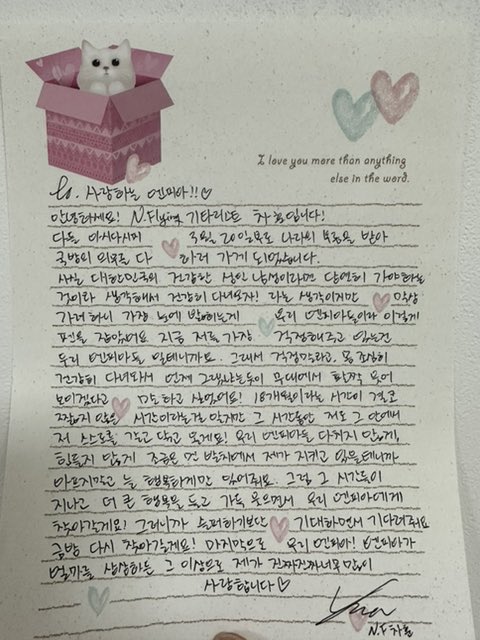 I love you more than anything
else in the word.
to. 사랑하는 엔피아!!♡
안녕하세요! N.Flying 기타리스트 차훈입니다!
다들 아시다시피 3월 20일부로 나라의 부름을 받아
국방의 의무를 다하러 가게 되었습니다.
사실 대한민국의 건강한 성인 남성이라면 당연히 가야하는
것이라 생각해서 건강히 다녀오자! 라는 생각이지만 막상
가려하니 가장 눈에 밟히는게 우리 엔피아들이라 이렇게
펜을 잡았어요 지금 저를 가장 걱정해주고 있는건
우리 엔피아들 일테니까요. 그래서 걱정말라고, 몸 조심히
건강히 다녀와서 언제 그랬냐는듯이 무대에서 활짝 웃어
보이겠다고 말하고 싶었어요! 18개월이라는 시간이 결코
짧지 않은 시간이라는걸 알지만 그 시간동안 저도 그 안에서
저 스스로를 갖고 닦고 올게요! 우리 엔피아들 다치지 않게,
힘들지 않게 조금은 먼 발치에서 제가 지키고 있을테니까
아프지말고 늘 행복하게만 있어줘요. 그럼 그 시간들이
지나고 더 큰 행복을 들고 가득 웃으면서 우리 엔피아에게
찾아갈게요! 그러니까 슬퍼하기보단 기대하면서 기다려줘요
금방 다시 찾아갈게요! 마지막으로 우리 엔피아! 엔피아가
얼마를 상상하든 그 이상으로 제가 진짜진짜너무많이
사랑합니다♡
N.F 차훈